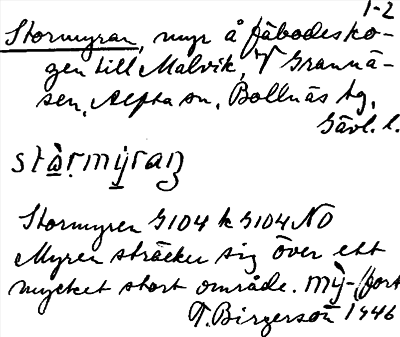 1-2
Stormyran, myr å fäbodesko-
gen till Malvik, V Grannä-
sen, Alfta sn, Bollnäs tg,
Gävl. l.
stòrmỳran
Stormyren 9104 k 9104 NO
Myren sträcker sig över ett
mycket stort område. mỳ-
T. Birgerson 1946